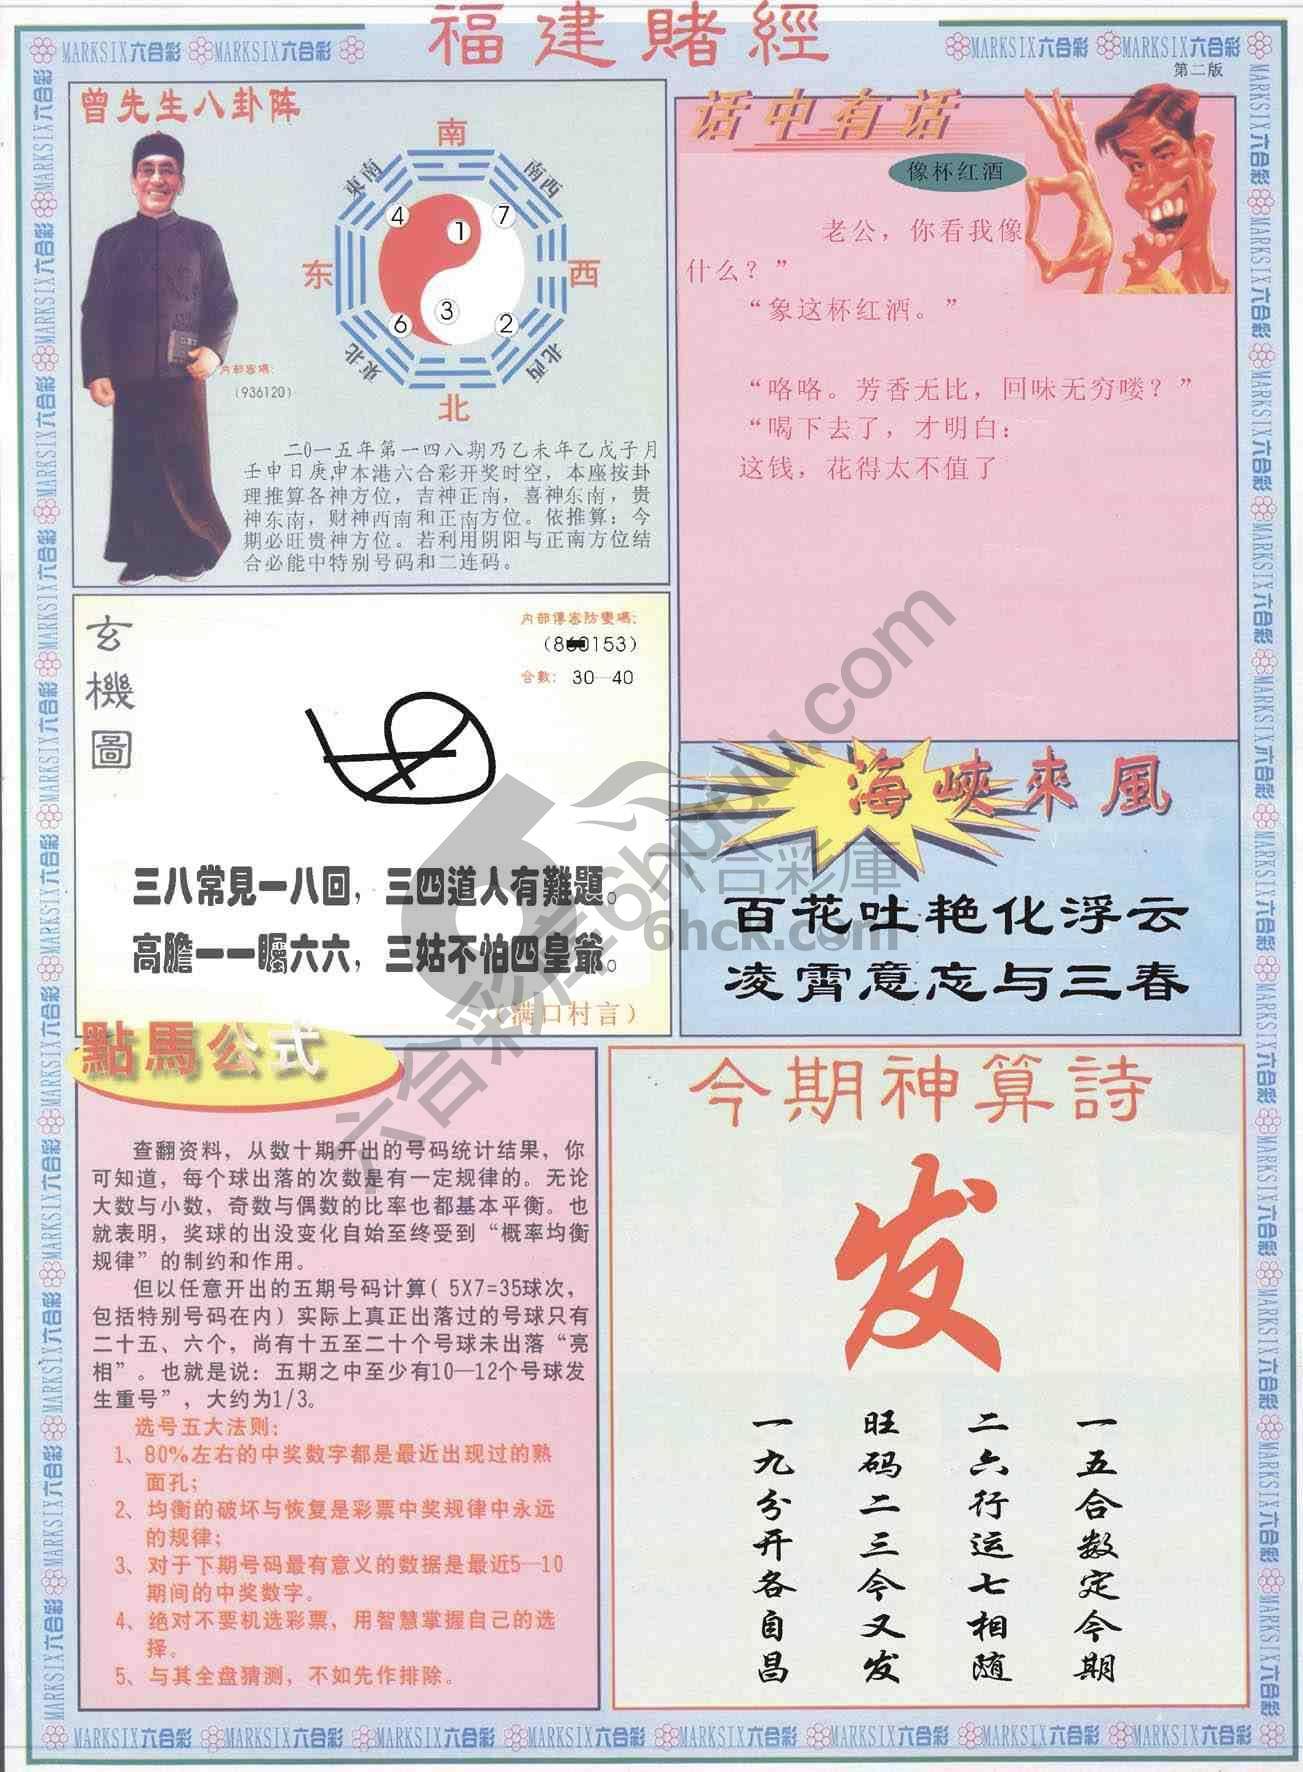 福建賭經
MARKSIX六合彩 MARKSIX六合彩
MARKSIX六合彩 MARKSIX六合彩
第二版
曾先生八卦阵
南
東南
南西
4
1
7
东
西
6
3
2
東北
北西
北
内部密碼:
(936120)
二0一五年第一四八期乃乙未年乙戊子月
壬申日庚申本港六合彩开奖时空，本座按卦
理推算各神方位，吉神正南，喜神东南，贵
神东南，财神西南和正南方位。依推算：今
期必旺贵神方位。若利用阴阳与正南方位结
合必能中特别号码和二连码。
话中有话
像杯红酒
老公，你看我像
什么？”
“象这杯红酒。”
“咯咯。芳香无比，回味无穷喽？”
“喝下去了，才明白：
这钱，花得太不值了
玄機圖
内部傳密防變碼:
(860153)
合數: 30—40
三八常見一八回，三四道人有難題。
高膽一一矚六六，三姑不怕四皇爺。
(满口村言)
海峽來風
百花吐艳化浮云
凌霄意忘与三春
點馬公式
查翻资料，从数十期开出的号码统计结果，你
可知道，每个球出落的次数是有一定规律的。无论
大数与小数，奇数与偶数的比率也都基本平衡。也
就表明，奖球的出没变化自始至终受到“概率均衡
规律”的制约和作用。
但以任意开出的五期号码计算( 5X7=35球次，
包括特别号码在内)实际上真正出落过的号球只有
二十五、六个，尚有十五至二十个号球未出落“亮
相”。也就是说：五期之中至少有10—12个号球发
生重号”，大约为1/3。
选号五大法则:
1、80%左右的中奖数字都是最近出现过的熟
面孔;
2、均衡的破坏与恢复是彩票中奖规律中永远
的规律;
3、对于下期号码最有意义的数据是最近5—10
期间的中奖数字。
4、绝对不要机选彩票，用智慧掌握自己的选
择。
5、与其全盘猜测，不如先作排除。
今期神算詩
发
一五合数定今期
二六行运七相随
旺码二三今又发
一九分开各自昌
六合彩库6hcyu.com
六合彩庫
6hck.com
MARKSIX六合彩 MARKSIX六合彩 MARKSIX六合彩 MARKSIX六合彩 MARKSIX六合彩 MARKSIX六合彩 MARKSIX六合彩 MARKSIX六合彩